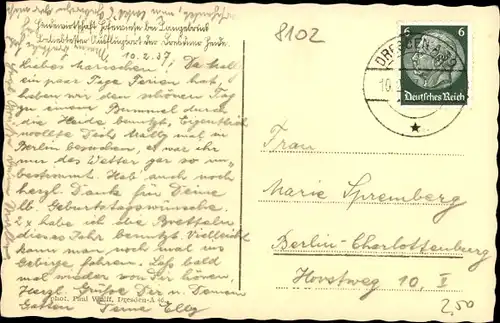 8102
Heidewirtschaft Hofewiese bei Langebrück
Beliebtester Ausflugsort der Dresdner Heide.
10.2.37
Liebes Mariechen! Da Walt.
ein paar Tage Ferien hat,
haben wir den schönen Tag
zu einem Bummel durch
die Heide benutzt. Eigentlich
wollte Dich Waltz mal in
Berlin besuchen, es war ihr
nur das Wetter gar so un-
bestimmt. Hab auch noch
herzl. Dank für Deine
lb. Geburtstagswünsche.
2x habe ich die Brettfeln
dieses Jahr benutzt. Vielleicht
kann man noch mal ins
Gebirge fahren. Laß bald
mal wieder von Dir hören.
Herzl. Grüße Dir u. Deinem
Gatten Deine Elly
phot. Paul Wolff, Dresden-A 46
DRESDEN
10.
6 6
Deutsches Reich
Frau
Marie Spremberg
Berlin-Charlottenburg
Horstweg 10, I
2,50